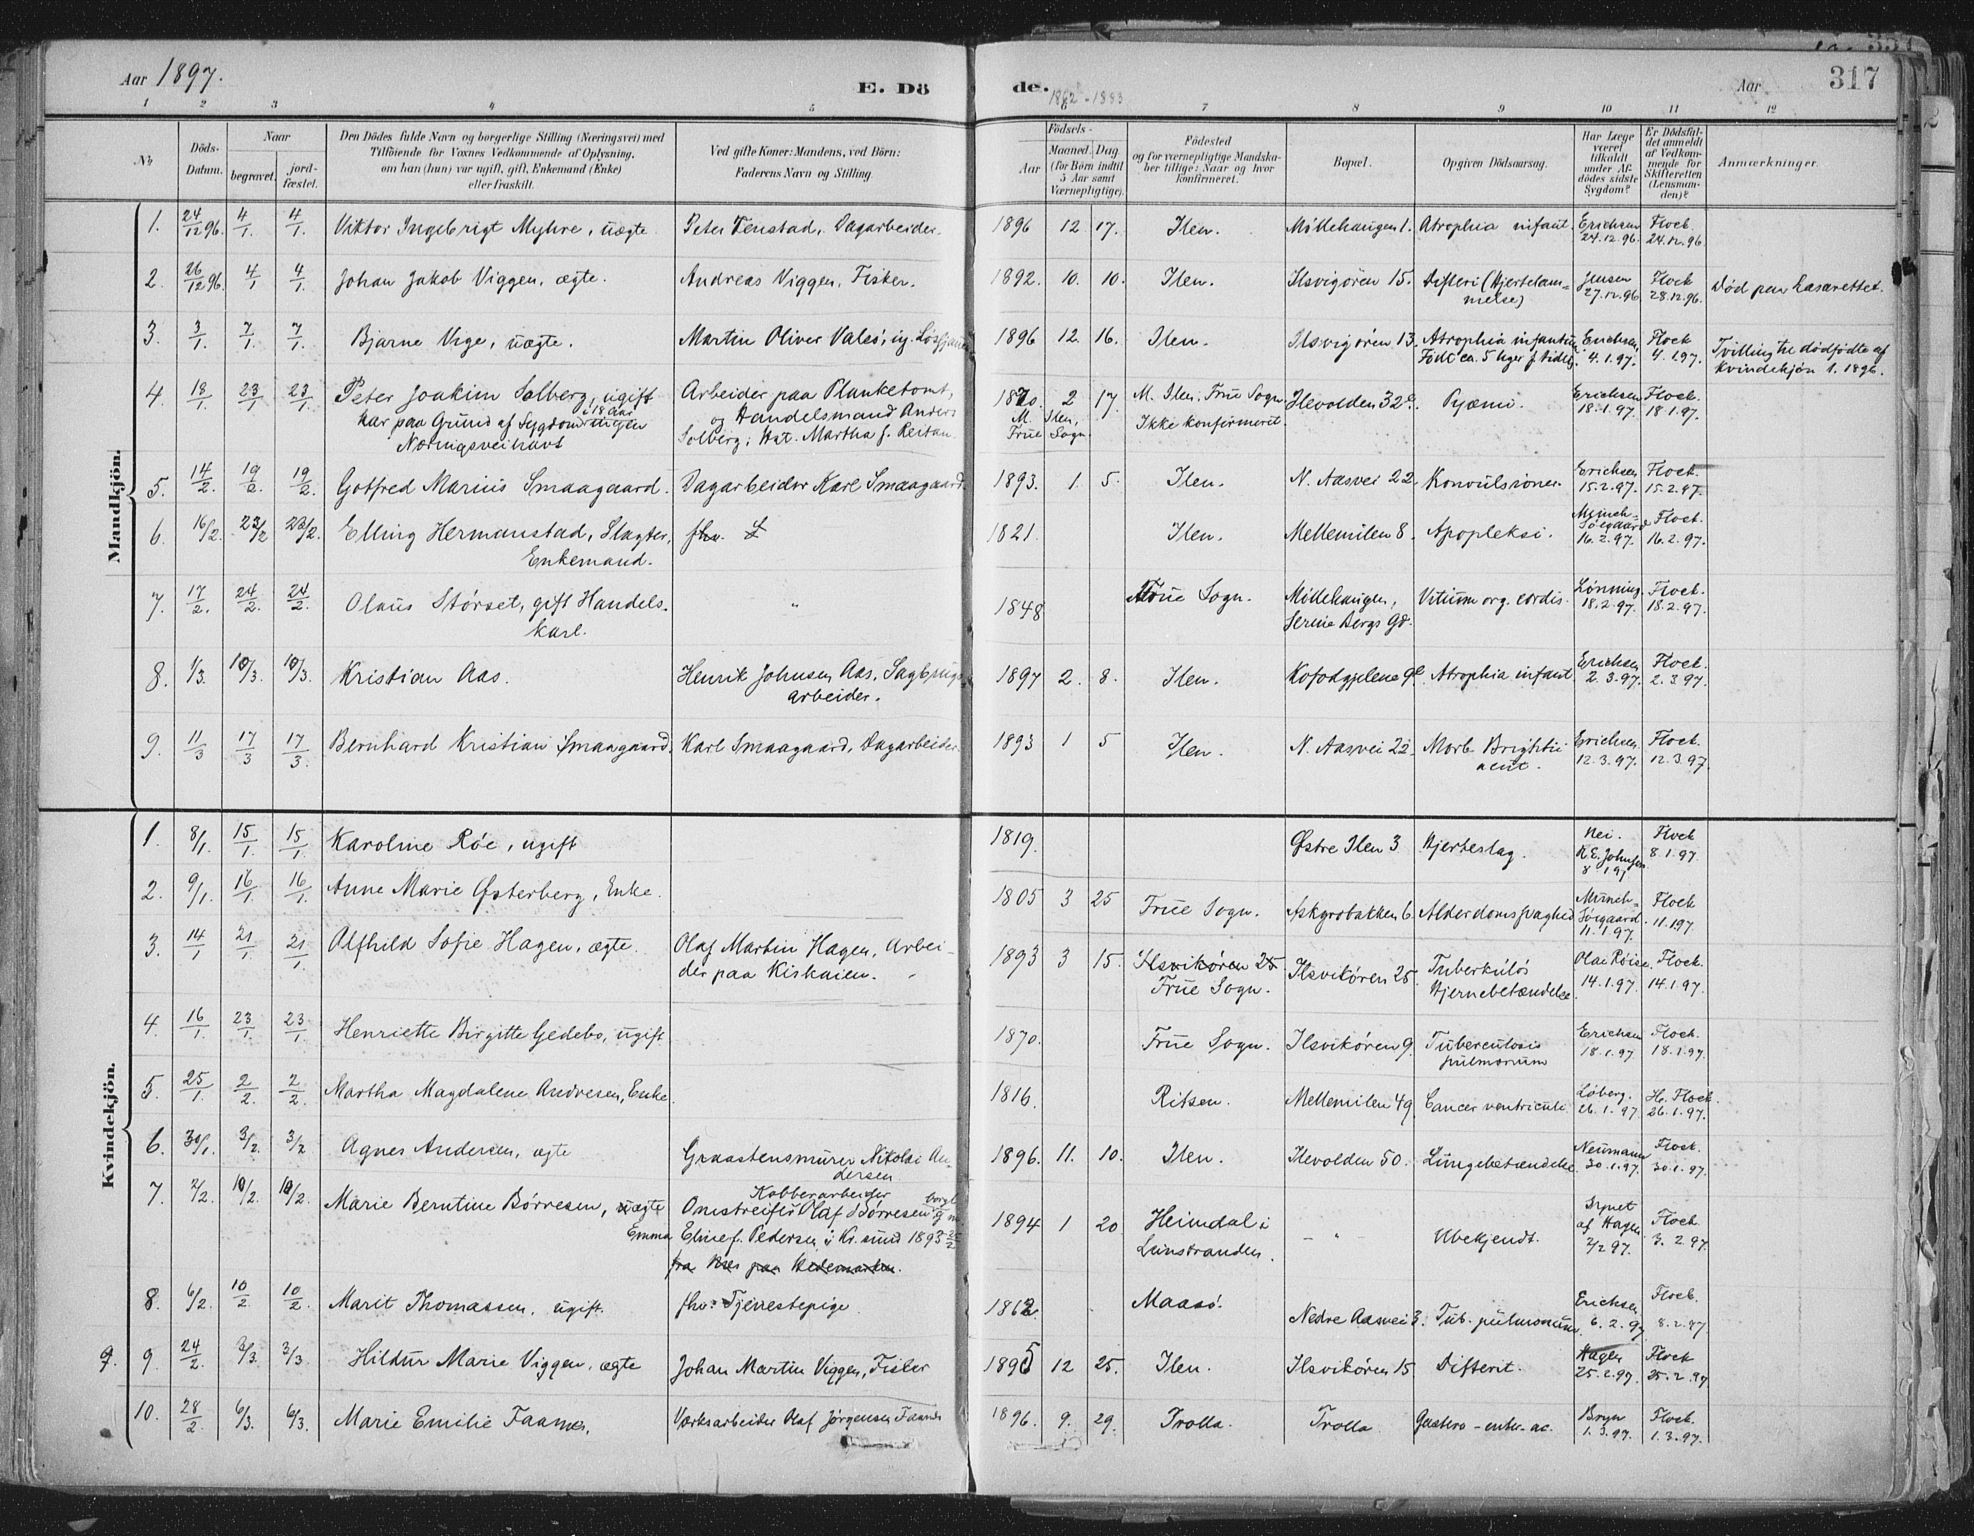 Aar 1897.
E. Dö
de.
1882-1883
Aar
317
1 2 3 4 5 6 7 8 9 10 11 12
No
Döds-Datum.
Naar
begravet.
jord-fæstet.
Den Dödes fulde Navn og borgerlige Stilling (Næringsvei) med
Tilföiende for Voxnes Vedkommende af Oplysning,
om han (hun) var ugift, gift, Enkemand (Enke)
eller fraskilt.
Ved gifte Koner: Mandens, ved Börn:
Faderens Navn og Stilling.
Födsels-
Aar
Maaned. Dag
(for Börn indtil
5 Aar samt
Værnepligtige).
Födested
og for værnepligtige Mandska-
ber tillige: Naar og hvor
konfirmeret.
Bopæl.
Opgiven Dödsaarsag.
Har Læge
været
tilkaldt
under Af-
dödes sidste
Sygdom?
Er Dödsfal-
det anmeldt
af Vedkom-
mende for
Skifteretten
(Lensman-
den)?
Anmærkninger.
Mandkjön.
1. 24/12 96. 4/1. 4/1. Viktor Ingebrigt Myhre, uægte Peter Fenstad, Dagarbeider. 1896 12. 17. Ilen. Möllehaugen 1. Atrophia infant. Erichsen 24.12.96. Flock. 24.12.96
2. 26/12 96. 4/1 4/1. Johan Jakob Viggen, ægte. Andreas Viggen, Fisker. 1892. 10. 10. Ilen. Ilsvigören 15. Difteri (Hjertelam-melse) Jensen 27.12.96 Flock 28.12.96. Död paa Lasarettet.
3. 3/1. 7/1. 7/1. Bjarne Vige, uægte. Martin Oliver Valsö, ug. 1896 12. 16. Ilen. Ilsvigören 13. Atrophia infantum Födt ca. 5 Uger f. Tiden. Erichsen 4.1.97. Flock 4.1.97. Tvilling til dödfödte af Kvindekjön 1. 1896.
4. 18/1. 23/1. 23/1. Peter Joakim Solberg, ugift
har paa Grund af Sygdom i 18 Aar ingen
Næringsvei havt
Arbeider paa Planketomt,
og Handelsmand Anders
Solberg; Hst. Martha f. Reitan
1870. 2 17. M. Ilen, Frue Sogn
M. Ilen, Frue Sogn. Ikke konfirmeret. Ilevolden 32 Pyæmi. Erichsen 18.1.97. Flock. 18.1.97.
5. 14/2. 19/2. 19/2. Gotfred Marius Smaagaard. Dagarbeider Karl Smaagaard. 1893. 1. 5. Ilen. N. Aasvei 22. Konvulsioner Erichsen 15.2.97. Flock. 15.2.97.
6. 16/2. 23/2 23/2. Elling Hermanstad, Slagter,
Enkemand.
fhv. 1821. Ilen. Mellemilen 8. Apopleksi. Münch-Söegaard 16.2.97. Flock. 16.2.97.
7. 17/2. 24/2. 24/2. Olaus Störset, gift Handels-
karl.
„ 1848 Frue Sogn. Möllehaugen,
Serine Bergs Gd. Vitium org. cordis. Lönning. 18.2.97. Flock. 18.2.97.
8. 1/3. 10/3. 10/3. Kristian Aas. Henrik Johnsen Aas, Sagbrugs-
arbeider. 1897 2. 8. Ilen. Kofodgjelene 9 Atrophia infant Erichsen 2.3.97. Flock. 2.3.97.
9. 11/3 17/3 17/3. Bernhard Kristian Smaagaard. Karl Smaagaard, Dagarbeider 1893 1 5 Ilen. N. Aasvei 22. Morb. Brightii
acut. Erichsen 12.3.97. Flock. 12.3.97.
Kvindekjön.
1. 8/1. 15/1. 15/1. Karoline Röe, ugift 1819. Östre Ilen 3 Hjerteslag. Nei. K.E. Johnsen 8 1 97 Flock 8.1.97.
2. 9/1. 16/1. 16/1. Anne Marie Österberg, Enke. 1805 3 25 Frue Sogn. Askgrobakken 6. Alderdomssvaghed Münch-Söegaard. 11.1.97. Flock 11.1.97.
3. 14/1 21/1 21/1. Alfhild Sofie Hagen, ægte. Olaf Martin Hagen, Arbei-
der paa Kiskaien. 1893 3 15. Ilsvikören 25
Frue Sogn. Ilsvikören 25. Tuberkulös
Hjernebetændelse Olav Röise. 14.1.97. Flock. 14.1.97.
4. 16/1 23/1 23/1. Henriette Birgitte Gedebo, ugift 1870. Frue Sogn. Ilsvikören 9. Tuberculosis
pulmonum Erichsen 18.1.97. Flock. 18.1.97.
5. 25/1. 2/2. 2/2. Martha Magdalene Andresen, Enke. 1816. Ritsen. Mellemilen 49 Cancer ventriculi Löberg. 26.1.97. H. Flock. 26.1.97.
6. 30/1. 3/2. 3/2 Agnes Andersen, ægte Graastensmurer Nikolai An-
dersen 1896. 11. 10. Ilen. Ilevolden 50. Lungebetændelse Neumann 30.1.97. Flock. 30.1.97.
7. 2/2. 10/2. 10/2. Marie Berntine Börresen, uægte Kobberarbeider
Omstreifer Olaf Börresen borgl. g. m.
Emma Eline f. Pedersen i Kr.sund 1893
fra paa Hedemarken.
1894 1 20 Heimdal i
Leinstranden. – „ – Ubekjendt. Synet af Hagen 3/2 97. Flock. 3.2.97.
8. 6/2. 10/2. 10/2. Marit Thomassen, ugift. fhv. Tjenestepige. 1862. Maasö. Nedre Aasvei 3. Tub. pulmonum. Erichsen 6.2.97 Flock. 8.2.97.
9. 9. 24/2. 3/3. 3/3. Hildur Marie Viggen, ægte Johan Martin Viggen, Fisker 1895 12 25. Ilen. Ilsvikören 15. Difterit. Hagen 25.2.97. Flock 25.2.97.
10. 28/2. 6/3. 6/3. Marie Emilie Faanes, Værksarbeider Olaf Jörgensen Faanes 1896. 9. 29. Trolla. Trolla. Gastro-enter. ac. Bryn 1.3.97. Flock. 1.3.97.